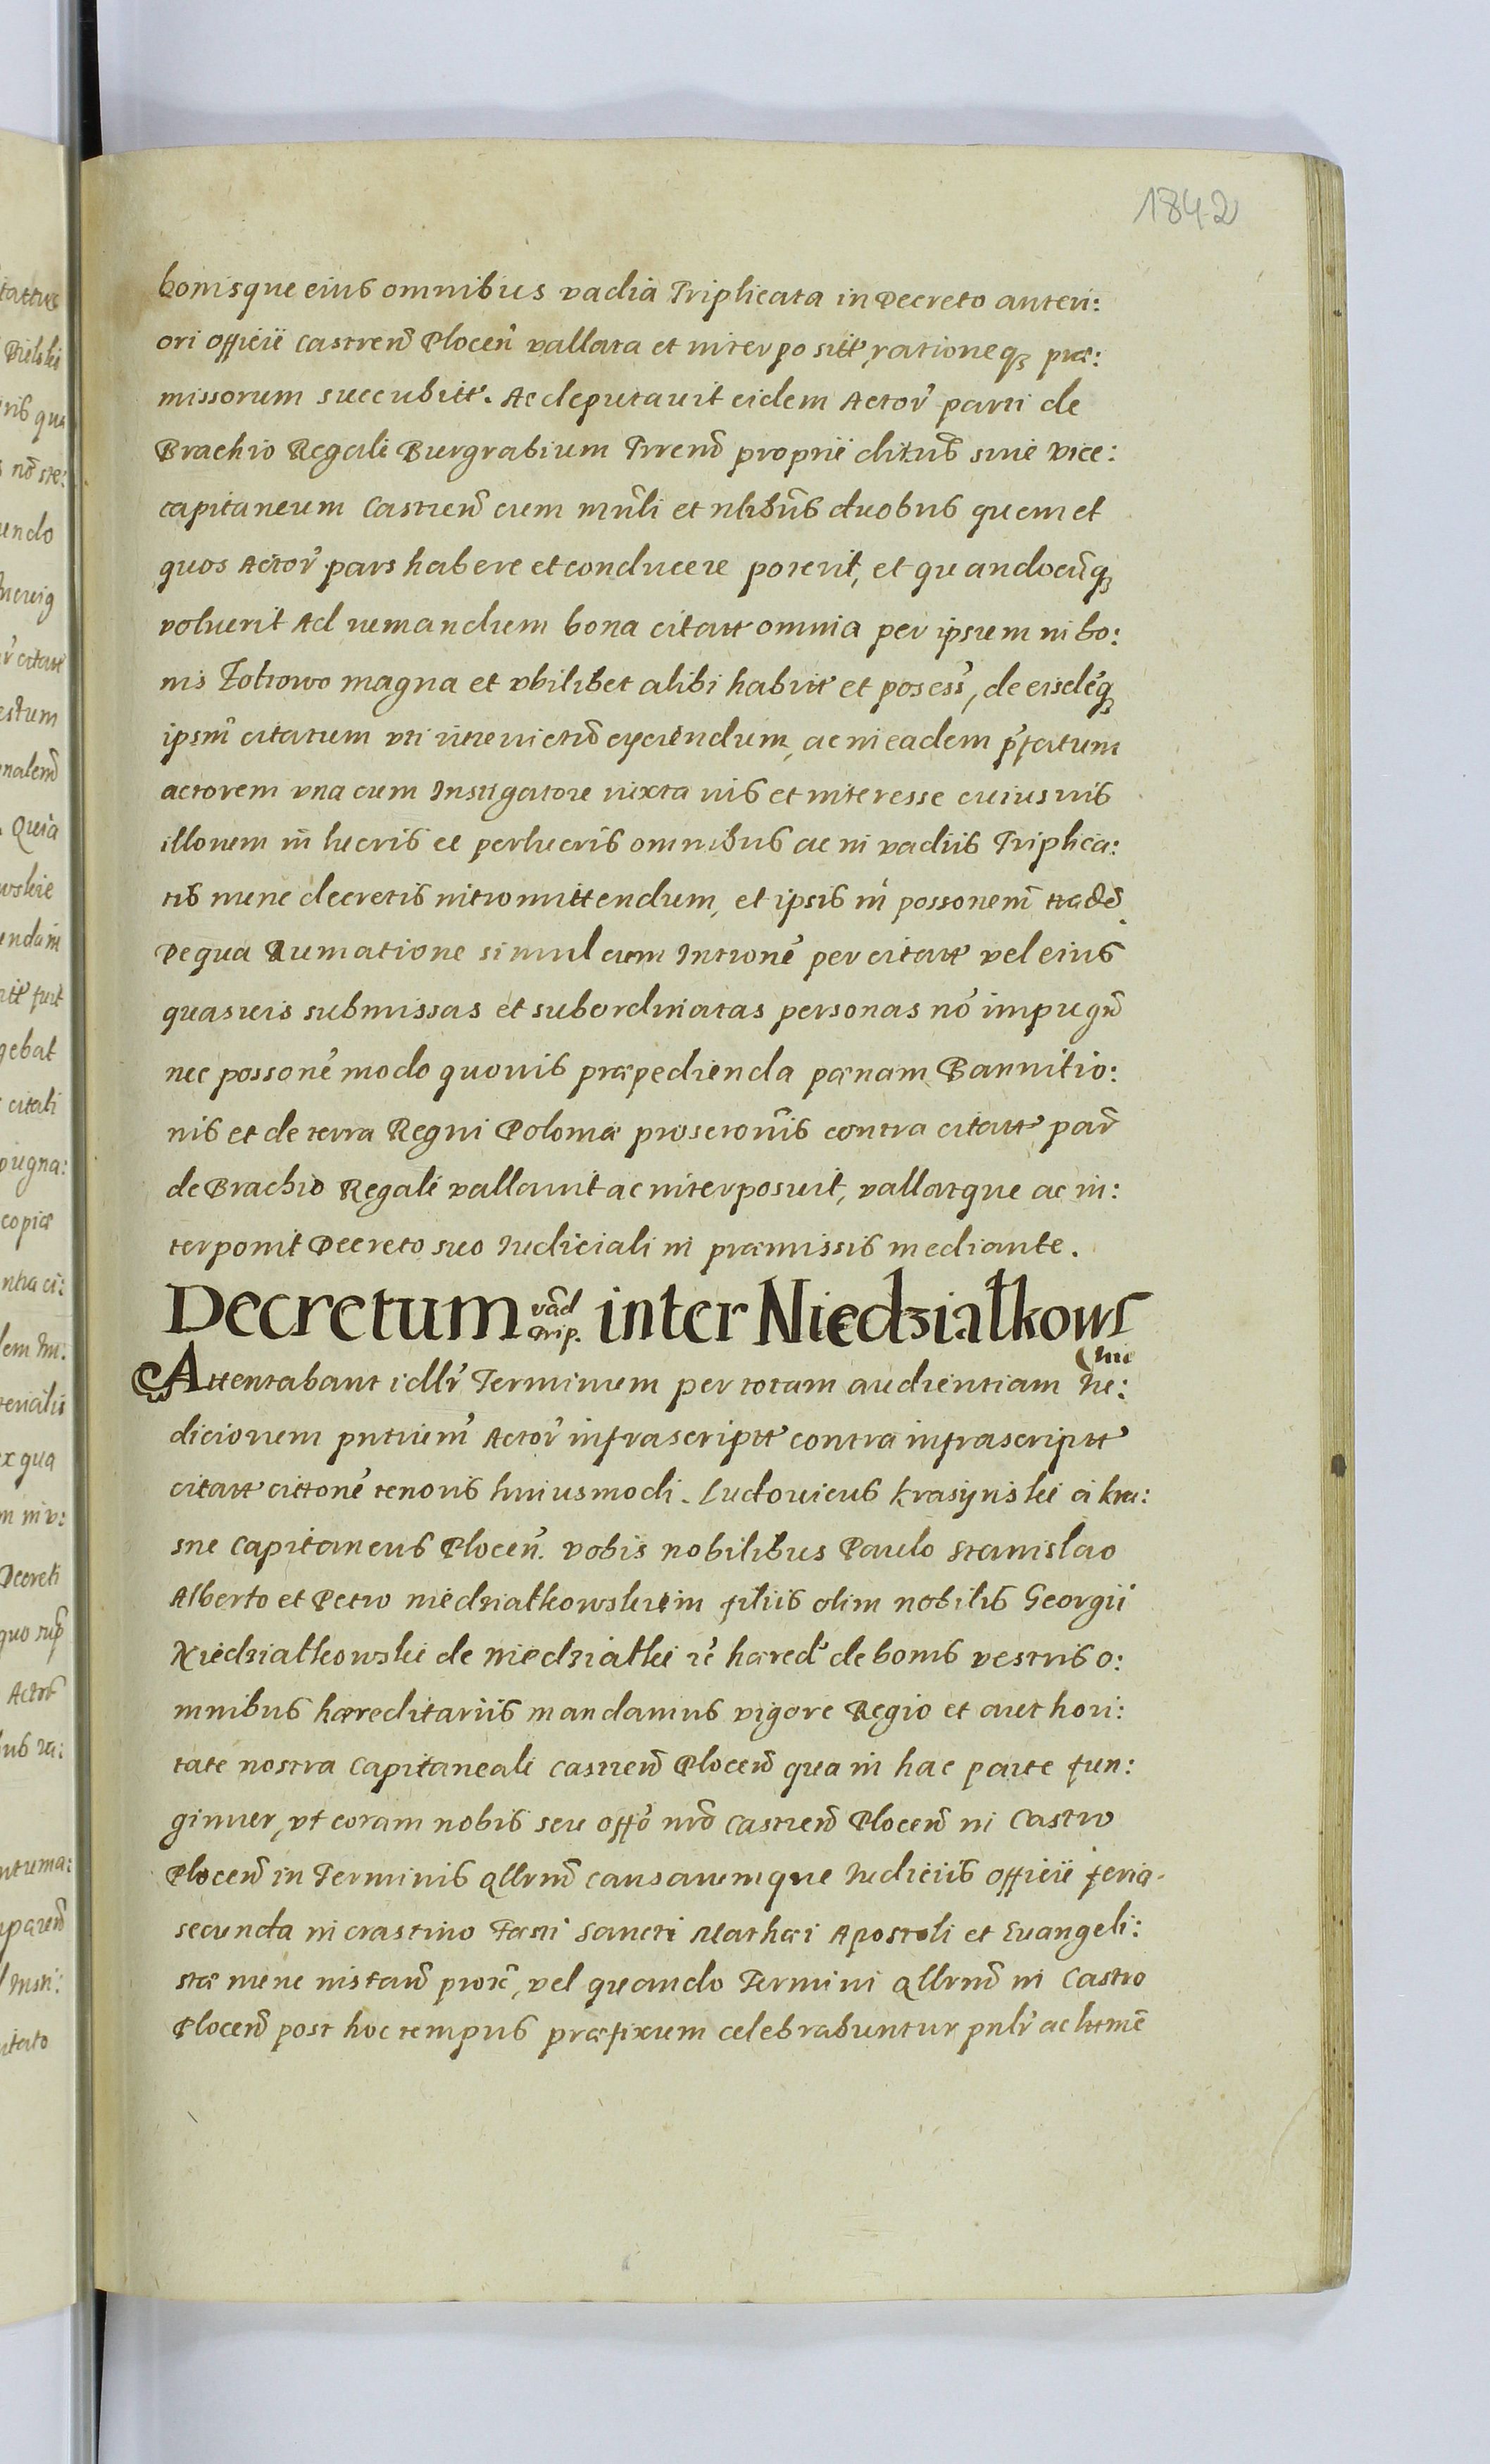 1842
bonisque eius omnibus vadia Triplicata in Decreto anteri:
ori officii Castren̄ Plocen̄ vallata et interposit̄t, rationeq₃ præ:
missorum succubitt. Ac deputavit eidem Actor̄ parti de
Brachio Regali Burgrabium Trrend̄ proprii ditus̄ sive vice:
capitaneum Castren̄ cum mn̄li et nb̄libus duobus quem et
quos Actor̄ pars habere et conducere poterit, et quandocūq₃
voluerit Ad rumandum bona citatt omnia per ipsum in bo:
nis Zotrowo magna et vbilibet alibi habitt et posess̄, de eisdēq₃
ipsm̄ citatum vti iure victū eyciendum, ac in eadem p̄fatum
actorem vna cum Instigatore iuxta ius et interesse cuiusuis
illorum in̄ lucris et perlucris omnibus ac in vadiis Triplica:
tis nunc decretis intromittendum, et ipsis in possonem̄ tradd̄.
De qua Rumatione simul cum Intronē per citatt vel eius
quasuis submissas et subordinatas personas nō impugn̄
nec possonē modo quouis præpedienda pænam Bannitio:
nis et de terra Regni Poloniæ proscron̄is contra citatt par̄
de Brachio Regali vallauit ac interposuit, vallatque ac in:
terponit Decreto suo Iudiciali in præmissis mediante.
Decretum vād Trip. inter Niedziałkows
kie
Attentabant idllr̄ Terminum per totam audientiam Iu:
diciorum pntium̄ Actor̄ infrascriptt contra infrascriptt
citatt cittonē tenoris huiusmodi. Ludouicus Krasynski a Kra:
sne Capitaneus Plocen̄. vobis nobilibus Paulo Stanislao
Alberto et Petro niedziałkowskiim filiis olim nobilis Georgii
Niedziałkowski de Niedziałki ꝛē hæred̄ de bonis vestris o:
mnibus hæreditariis mandamus vigore Regio et authori:
tate nostra Capitaneali castren̄ Plocen̄ qua in hac parte fun:
gimur, vt coram nobis seu offō nrō Castren̄ Plocen̄ in Castro
Plocen̄ in Terminis qllrum̄ causarumque Iudiciis officii feria
secunda in crastino Fæsti Sancti Mathæi Apostoli et Euangeli:
stæ nunc instan̄ prox̄, vel quando Termini qllrum̄ in Castro
Plocen̄ post hoc tempus præfixum celebrabuntur pnlr̄ ac lttmē